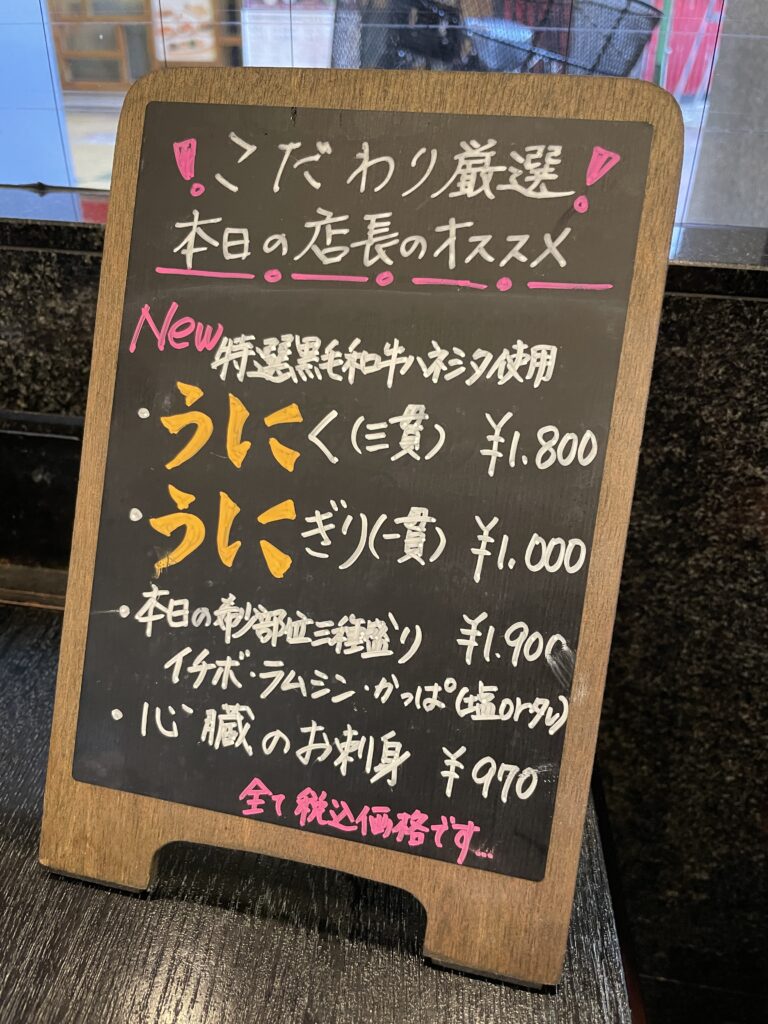 ！こだわり厳選！
本日の店長のオススメ
New 特選黒毛和牛ハネシタ使用
・うにく(三貫) ¥1.800
・うにぎり(一貫) ¥1.000
・本日の希少部位三種盛り ¥1.900
イチボ・ラムシン・かっぱ(塩orタレ)
・心臓のお刺身 ¥970
全て税込価格です...